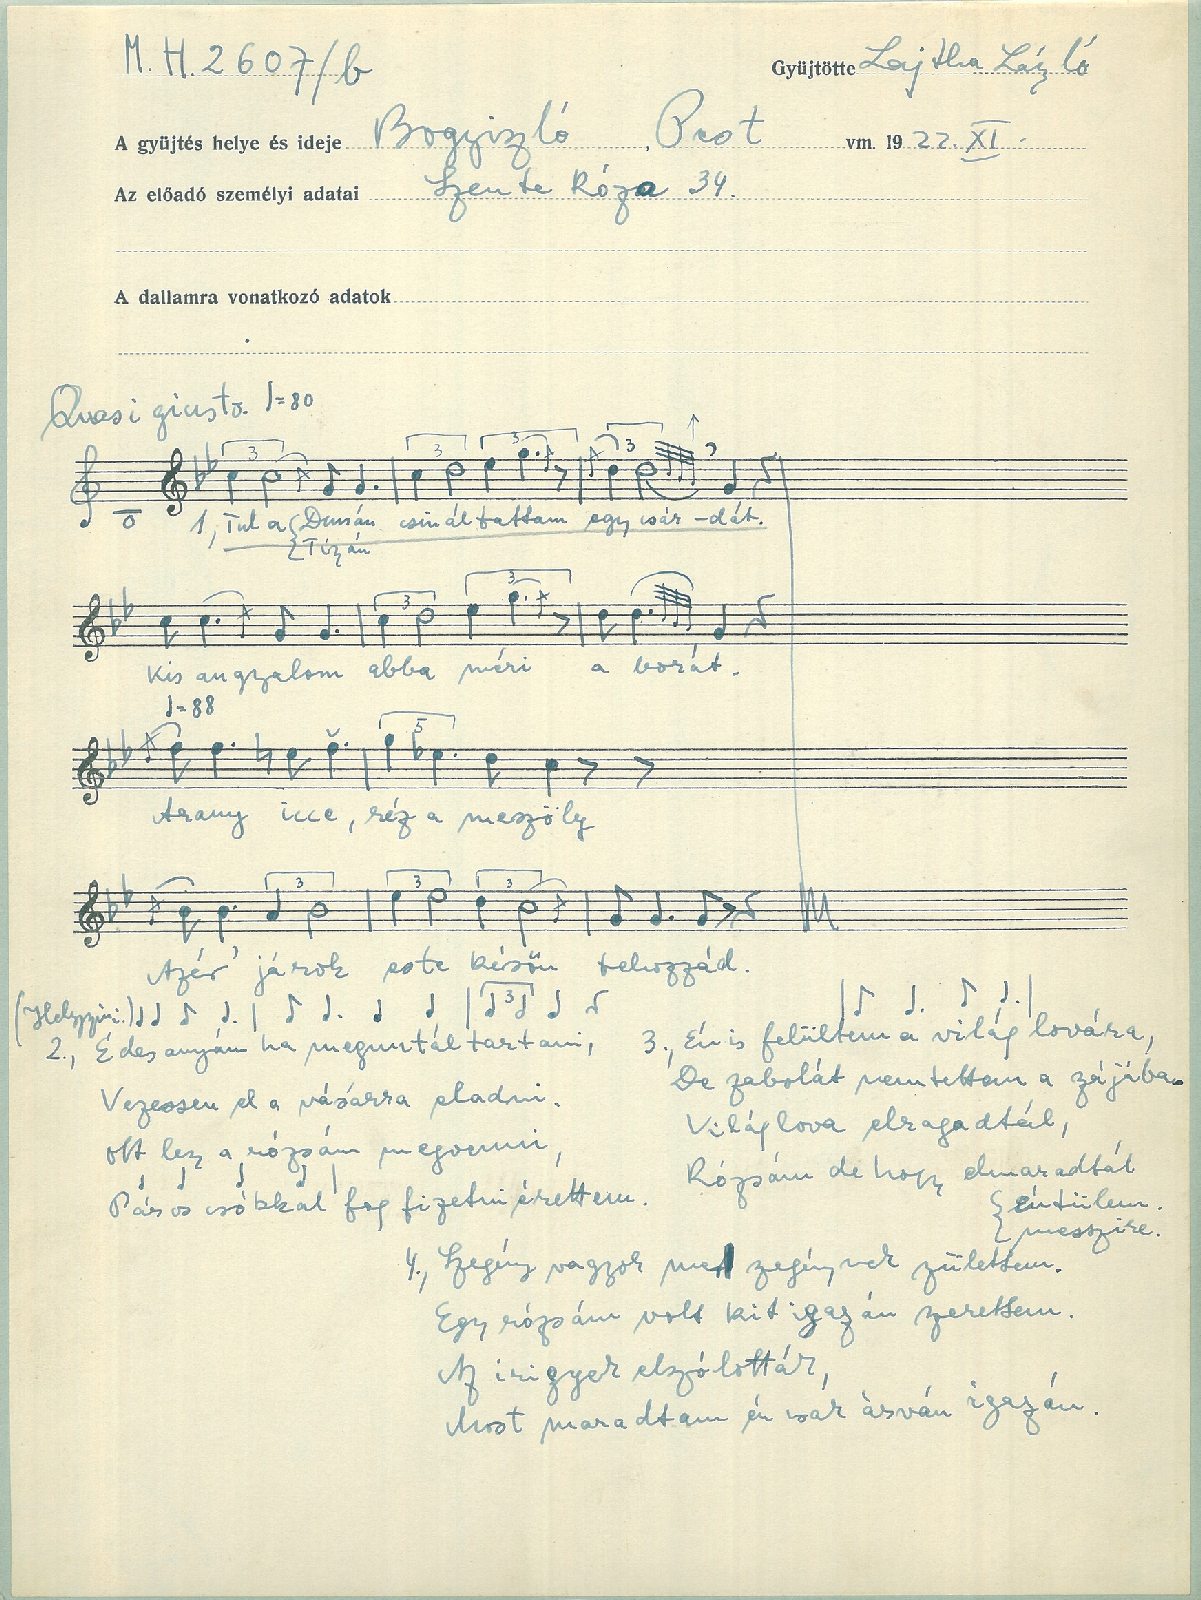 M. H. 2607/b
Gyüjtötte Lajtha László
A gyüjtés helye és ideje Bogyiszló, Pest vm. 1922. XI.
Az előadó személyi adatai Szente Róza 34.
A dallamra vonatkozó adatok
Quasi giusto. ♩=80
3 3 3 3
1, Tul a { Dunán csináltattam egy csár-dát.
{ Tiszán
3 3
Kis angyalom abba méri a borát.
♩=88
5
Arany icce, réz a meszöly
3 3 3
Azér' járok este későn tehozzád.
(Helyszíni.) 3
2., Édesanyám ha meguntál tartani,
Vezessen el a vásárra eladni.
Ott lesz a rózsám megvenni,
Páros csókkal fog fizetni érettem.
3., Én is felültem a világ lovára,
De zabolát nem tettem a zájába.
Világ lova elragadtál,
Rózsám de hogy elmaradtál
{ éntülem.
{ messzire.
4., Szegény vagyok mer zegénynek zülettem.
Egy rózsám volt kit igazán zerettem.
Az irigyek elszólották,
Most maradtam én csak árván igazán.